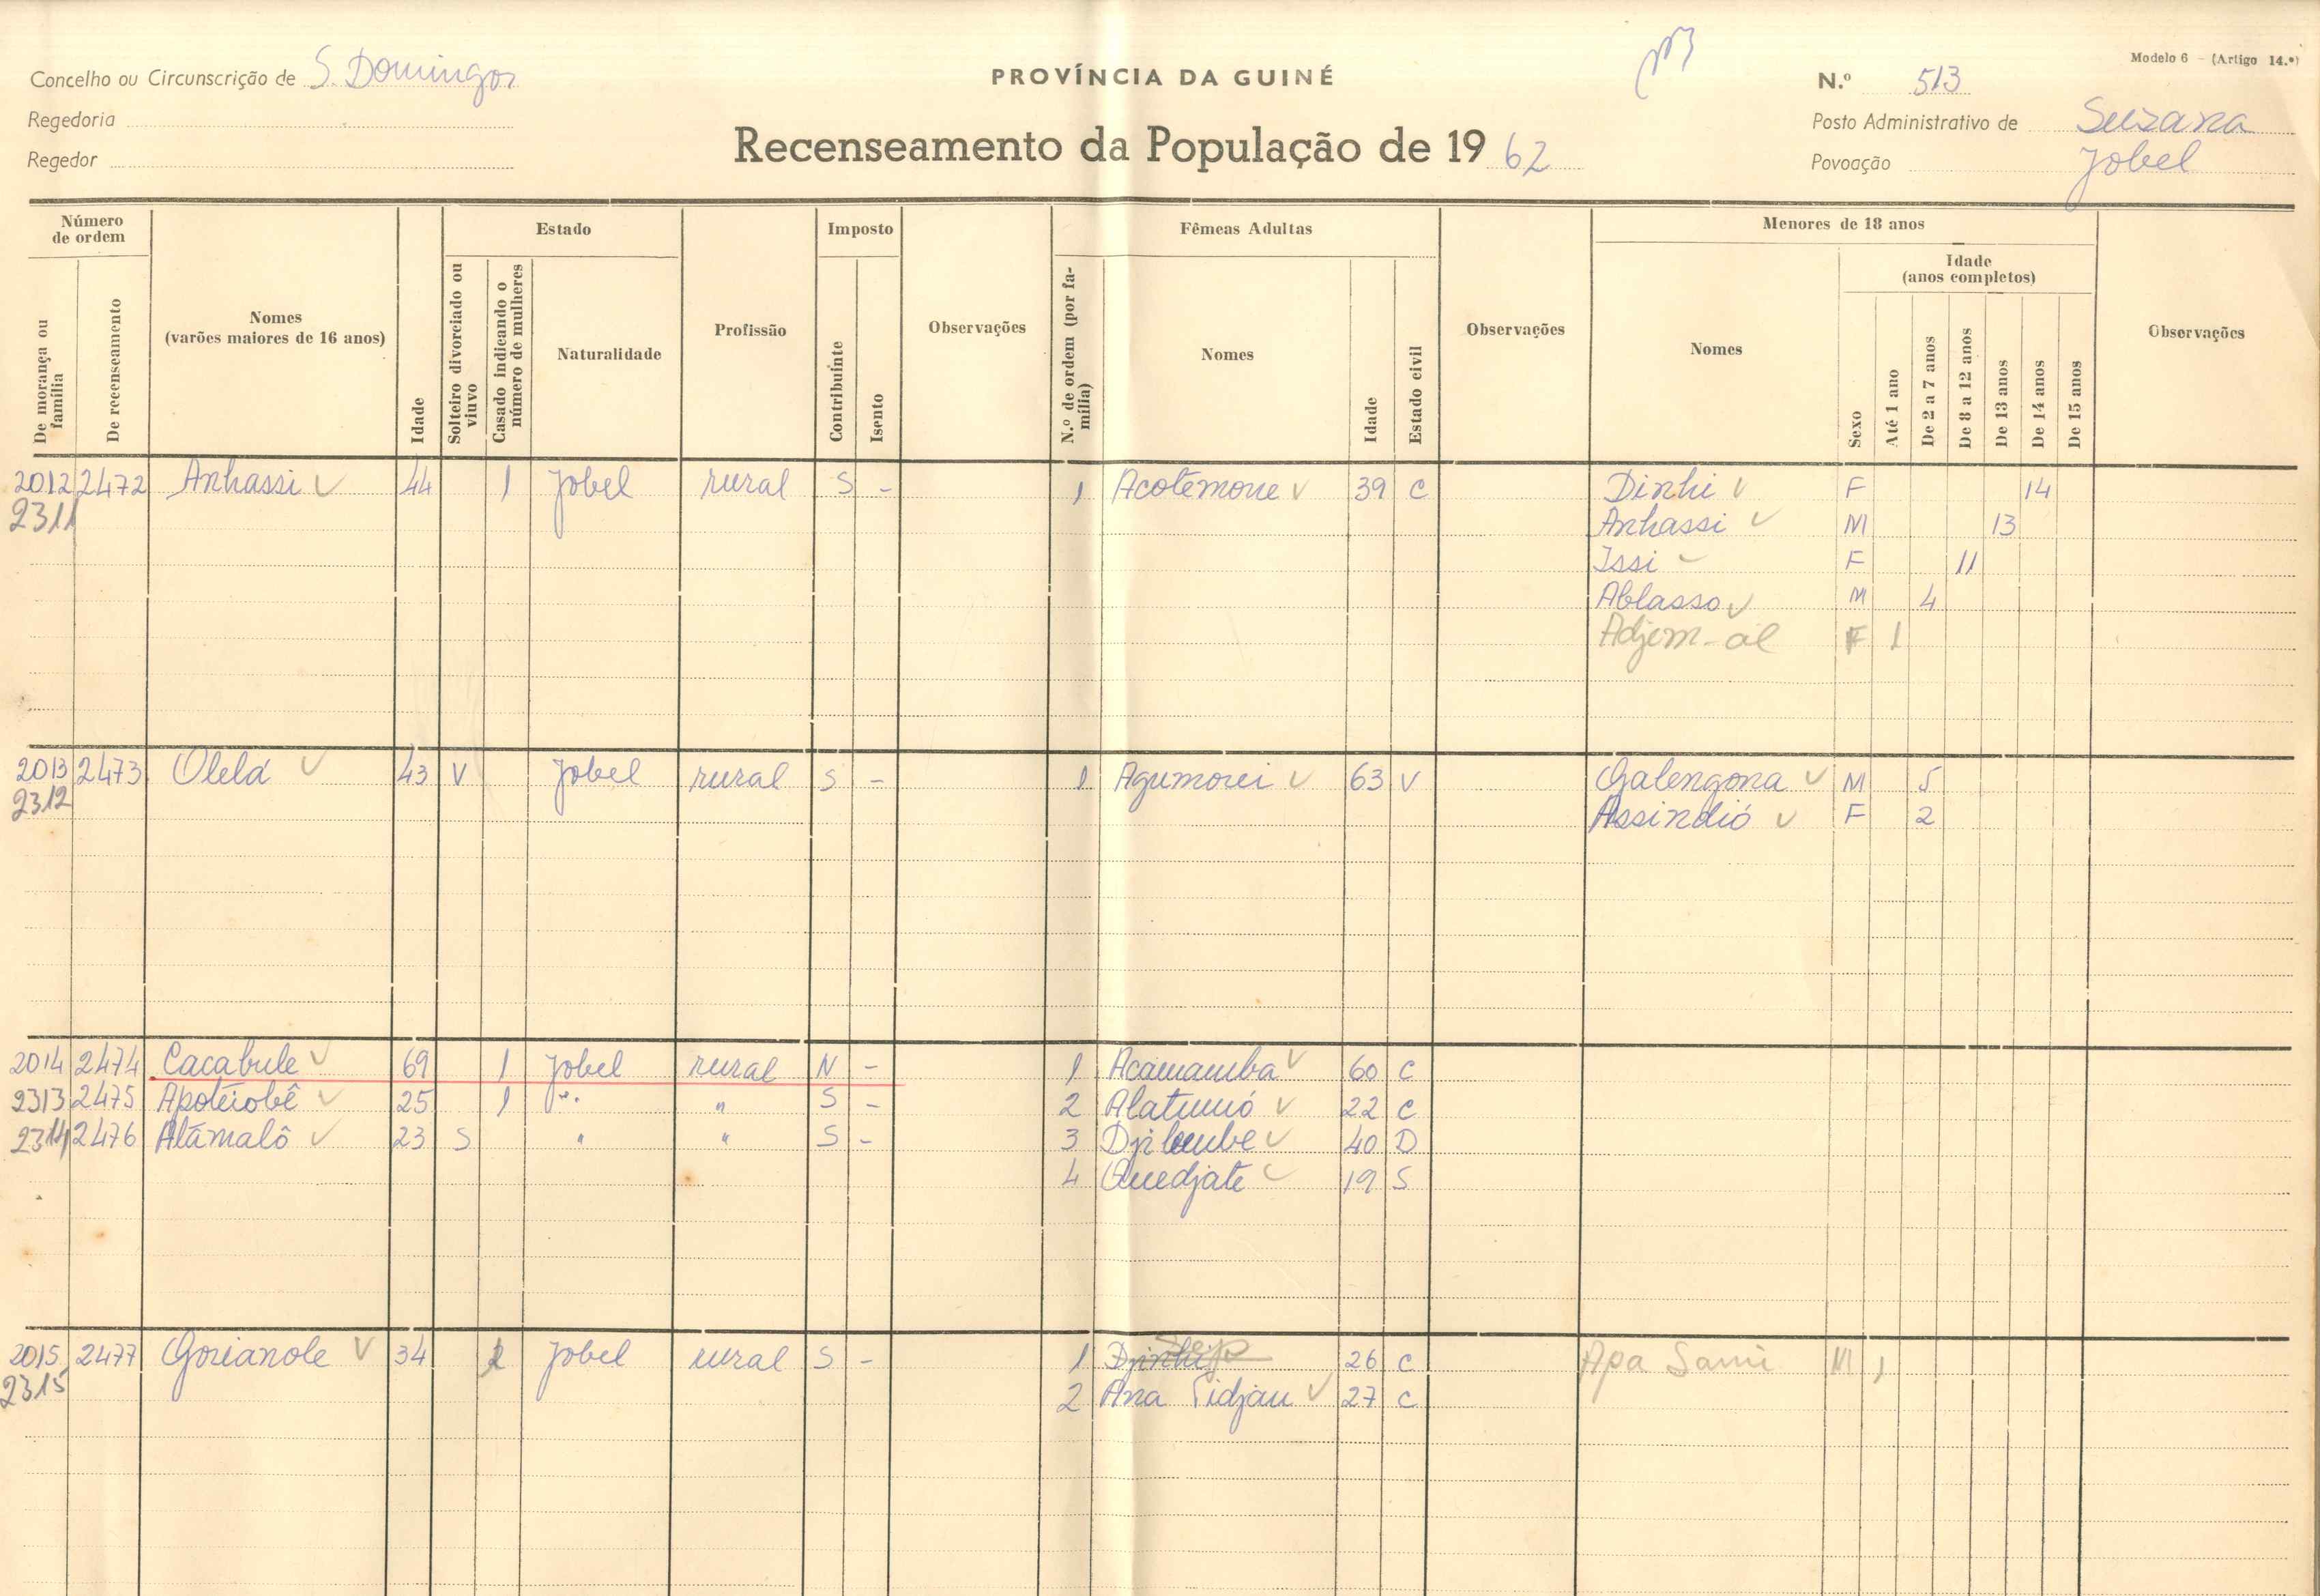 Modelo 6 - (Artigo 14.º)
Concelho ou Circunscrição de S. Domingos
PROVÍNCIA DA GUINÉ
N.º 513
Regedoria
Recenseamento da População de 1962
Posto Administrativo de Suzana
Regedor
Povoação Jobel
Número de ordem
De morança ou família
De recenseamento
Nomes (varões maiores de 16 anos)
Idade
Estado
Solteiro divorciado ou viuvo
Casado indicando o número de mulheres
Naturalidade
Profissão
Imposto
Contribuínte
Isento
Observações
N.º de ordem (por família)
Fêmeas Adultas
Nomes
Idade
Estado civil
Observações
Menores de 18 anos
Nomes
Sexo
Idade (anos completos)
Até 1 ano
De 2 a 7 anos
De 8 a 12 anos
De 13 anos
De 14 anos
De 15 anos
Observações
2012 2472 Anhassi 44 1 Jobel rural S - 1 Acotemone 39 C Dinhi F 14
2311 Anhassi M 13
Issi F 11
Ablasso M 4
Adjem-al F 1
2013 2473 Olelá 43 V Jobel rural S - 1 Agumorei 63 V Galengona M 5
2312 Assindió F 2
2014 2474 Cacabule 69 1 Jobel rural N - 1 Acamamba 60 C
2313 2475 Apotéiobê 25 1 " " S - 2 Alatumó 22 C
2314 2476 Alámalô 23 S " " S - 3 40 D
4 Quedjate 19 S
2015 2477 Gorianole 34 2 Jobel rural S - 1 Djinhi 26 C Apa Sami M 1
2315 2 Ana Tidjau 27 C